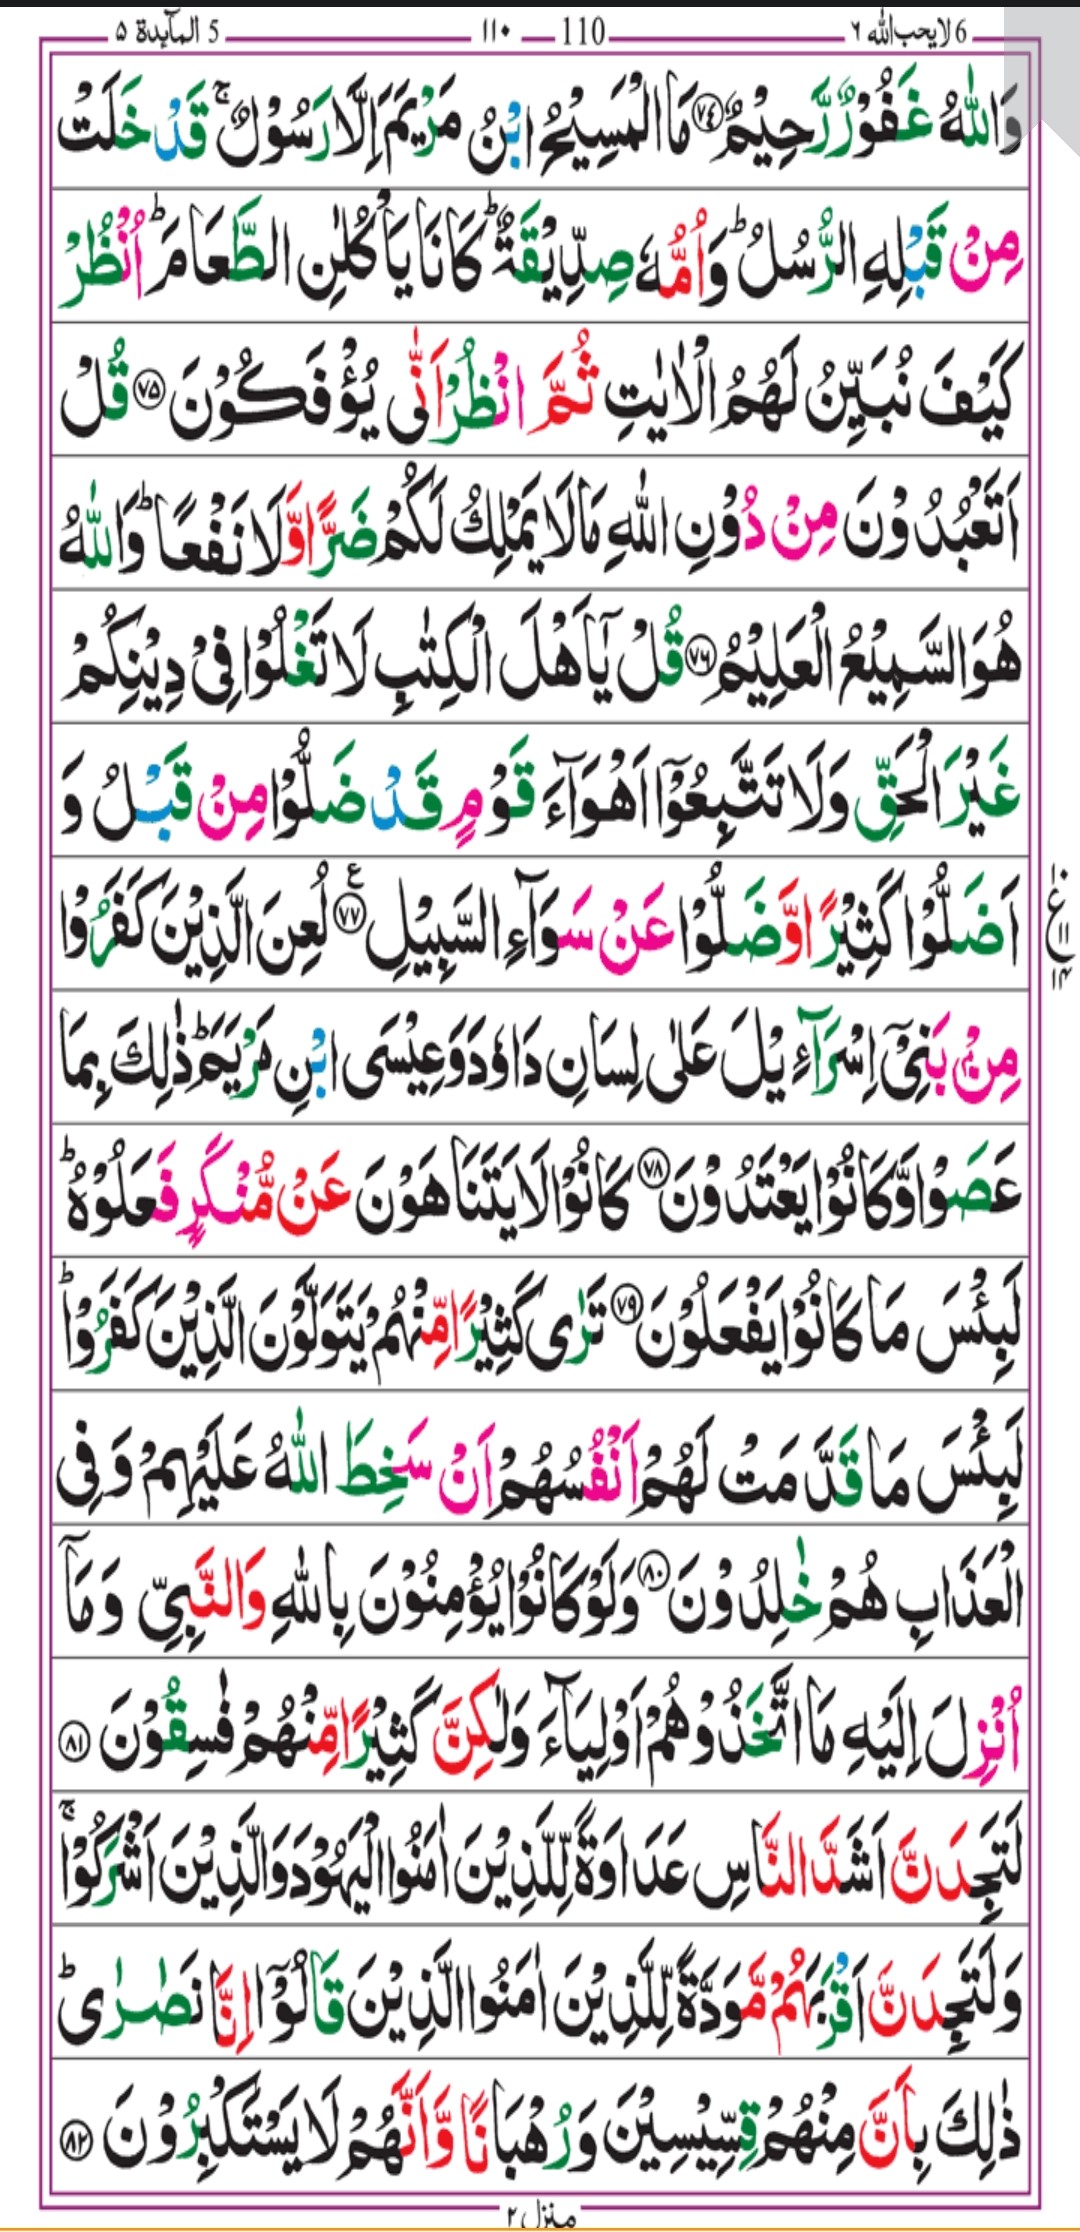 6 لا یحب الله ٦ 110 ١١٠ 5 المآئدة ۵
وَاللّٰهُ غَفُوْرٌ رَّحِيْمٌ ﴿۷۴﴾ مَا الْمَسِيْحُ ابْنُ مَرْيَمَ اِلَّا رَسُوْلٌ ۚ قَدْ خَلَتْ
مِنْ قَبْلِهِ الرُّسُلُ ؕ وَاُمُّهٗ صِدِّيْقَةٌ ؕ كَانَا يَاْكُلٰنِ الطَّعَامَ ؕ اُنْظُرْ
كَيْفَ نُبَيِّنُ لَهُمُ الْاٰيٰتِ ثُمَّ انْظُرْ اَنّٰى يُؤْفَكُوْنَ ﴿۷۵﴾ قُلْ
اَتَعْبُدُوْنَ مِنْ دُوْنِ اللّٰهِ مَا لَا يَمْلِكُ لَكُمْ ضَرًّا وَّلَا نَفْعًا ؕ وَاللّٰهُ
هُوَ السَّمِيْعُ الْعَلِيْمُ ﴿۷۶﴾ قُلْ يٰۤاَهْلَ الْكِتٰبِ لَا تَغْلُوْا فِىْ دِيْنِكُمْ
غَيْرَ الْحَقِّ وَلَا تَتَّبِعُوْۤا اَهْوَآءَ قَوْمٍ قَدْ ضَلُّوْا مِنْ قَبْلُ وَ
اَضَلُّوْا كَثِيْرًا وَّضَلُّوْا عَنْ سَوَآءِ السَّبِيْلِ ﴿۷۷﴾ ع لُعِنَ الَّذِيْنَ كَفَرُوْا
ع ١٠ ١١ ١٤
مِنْۢ بَنِىْۤ اِسْرَآءِيْلَ عَلٰى لِسَانِ دَاوٗدَ وَعِيْسَى ابْنِ مَرْيَمَ ؕ ذٰلِكَ بِمَا
عَصَوْا وَّكَانُوْا يَعْتَدُوْنَ ﴿۷۸﴾ كَانُوْا لَا يَتَنَاهَوْنَ عَنْ مُّنْكَرٍ فَعَلُوْهُ ؕ
لَبِئْسَ مَا كَانُوْا يَفْعَلُوْنَ ﴿۷۹﴾ تَرٰى كَثِيْرًا مِّنْهُمْ يَتَوَلَّوْنَ الَّذِيْنَ كَفَرُوْا ؕ
لَبِئْسَ مَا قَدَّمَتْ لَهُمْ اَنْفُسُهُمْ اَنْ سَخِطَ اللّٰهُ عَلَيْهِمْ وَفِى
الْعَذَابِ هُمْ خٰلِدُوْنَ ﴿۸۰﴾ وَلَوْ كَانُوْا يُؤْمِنُوْنَ بِاللّٰهِ وَالنَّبِىِّ وَمَاۤ
اُنْزِلَ اِلَيْهِ مَا اتَّخَذُوْهُمْ اَوْلِيَآءَ وَلٰكِنَّ كَثِيْرًا مِّنْهُمْ فٰسِقُوْنَ ﴿۸۱﴾
لَتَجِدَنَّ اَشَدَّ النَّاسِ عَدَاوَةً لِّلَّذِيْنَ اٰمَنُوا الْيَهُوْدَ وَالَّذِيْنَ اَشْرَكُوْا ۚ
وَلَتَجِدَنَّ اَقْرَبَهُمْ مَّوَدَّةً لِّلَّذِيْنَ اٰمَنُوا الَّذِيْنَ قَالُوْۤا اِنَّا نَصٰرٰى ؕ
ذٰلِكَ بِاَنَّ مِنْهُمْ قِسِّيْسِيْنَ وَرُهْبَانًا وَّاَنَّهُمْ لَا يَسْتَكْبِرُوْنَ ﴿۸۲﴾
منزل ۲